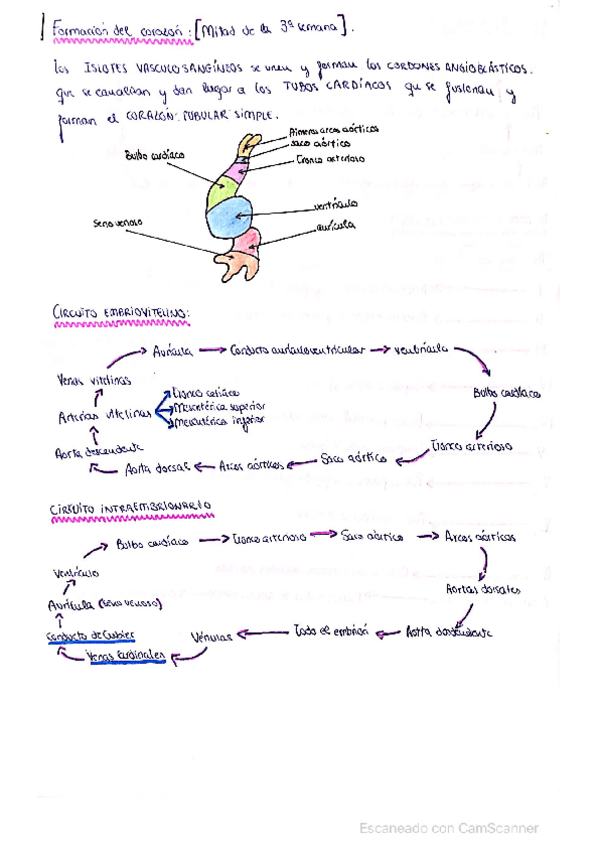 Formación del corazón: [Mitad de la 3ª semana].
Los ISLOTES VASCULOSANGÍNEOS se unen y forman los CORDONES ANGIOBLÁSTICOS.
que se canalizan y dan lugar a los TUBOS CARDÍACOS que se fusionan y
forman el CORAZÓN TUBULAR SIMPLE.
Primeros arcos aórticos
saco aórtico
Tronco arterioso
Bulbo cardíaco
ventrículo
Seno venoso
aurícula
CIRCUITO EMBRIOVITELINO:
Aurícula → Conducto auriculoventricular → ventrículo
Venas vitelinas
Bulbo cardíaco
Tronco celíaco
Arterias vitelinas
Mesentérica superior
Mesentérica inferior
Aorta descendente
Tronco arterioso
Aorta dorsal ← Arcos aórticos ← Saco aórtico
CIRCUITO INTRAEMBRIONARIO
Bulbo cardíaco → Tronco arterioso → Saco aórtico → Arcos aórticos
Ventrículo
Aortas dorsales
Aurícula (seno venoso)
Conducto de Cuvier
Vénulas ← Todo el embrión ← Aorta descendente
Venas cardinales
Escaneado con CamScanner